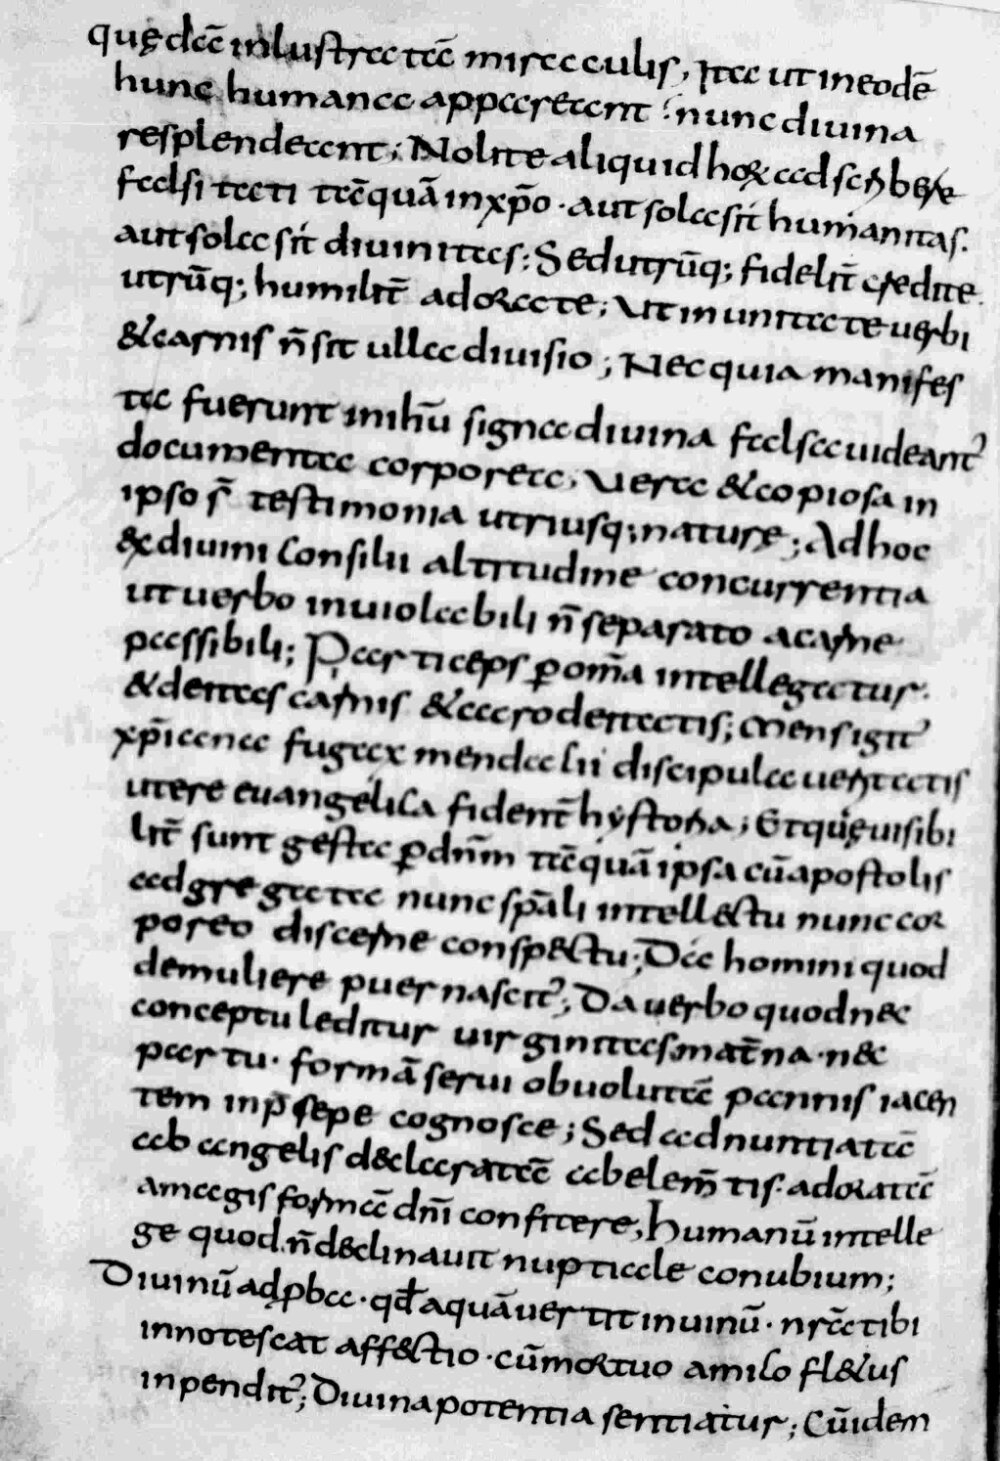 quędã inlustrata miraculis, Ita ut in eodē
hunc humana apparerent ; nunc diuina
resplendeant; Nolite aliquid horum ad scribere
falsi tati tãquã in xp̄o · aut sola sit humanitas.
aut sola sit diuinitas; Sed utrūq; fidelit̄ credite.
utrūq; humilit̄ adorate; Ut in unitate uerbi
& carnis ñ sit ulla diuisio; Nec quia manifes
ta fuerunt in ihū signa diuina falsa uideant̄
documenta corporea, Uera & copiosa in
ipso s̄ testimonia utriusq; naturę; Ad hoc
ex diuini consilii altitudine concurrentia
ut uerbo inuiolabili ñ separato a carne
passibili; Particeps p om̄a intellegatur.
& deitas carnis & caro deitatis; Mens igit̄
xp̄iana fugax mendacii discipula ueritatis
utere euangelica fident̄ hystoria; Et quę uisibi
lit̄ sunt gesta p dn̄m tãquã ipsa cū apostolis
adgregata nunc sp̄ali intellectu nunc cor
poreo discerne conspectu; Da homini quod
de muliere puer nascit̄; Da uerbo quod nec
conceptu leditur uirginitas mat̄na · nec
partu · formã serui obuolutã pannis iacen
tem in p̄sepe cognosce; Sed adnuntiatã
ab angelis declaratã ab elem̄tis · adoratã
a magis formã dn̄i confitere; Humanū intelle
ge quod ñ declinauit nuptiale conubium;
Diuinū ad,pba · qd̄ aquã uertit in uinū · nr̄ã tibi
innotescat affectio · cū mortuo amico fletus
inpendit̄; Diuina potentia sentiatur; Cū idem